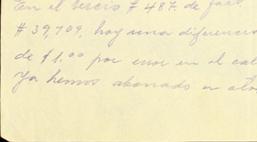 En el recio # 487 de fact.
# 39,709, hay una diferencia
de $1.00 por error en el cal
Ya hemos abonado en